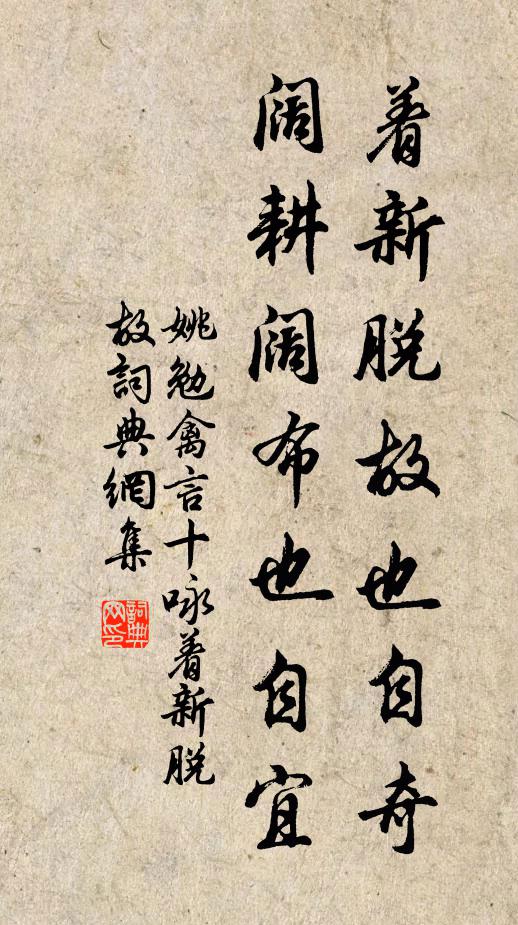 着新脱故也自奇
阔耕阔布也自宜
姚勉禽言十咏着新脱
故詞典網集
詞典
网印